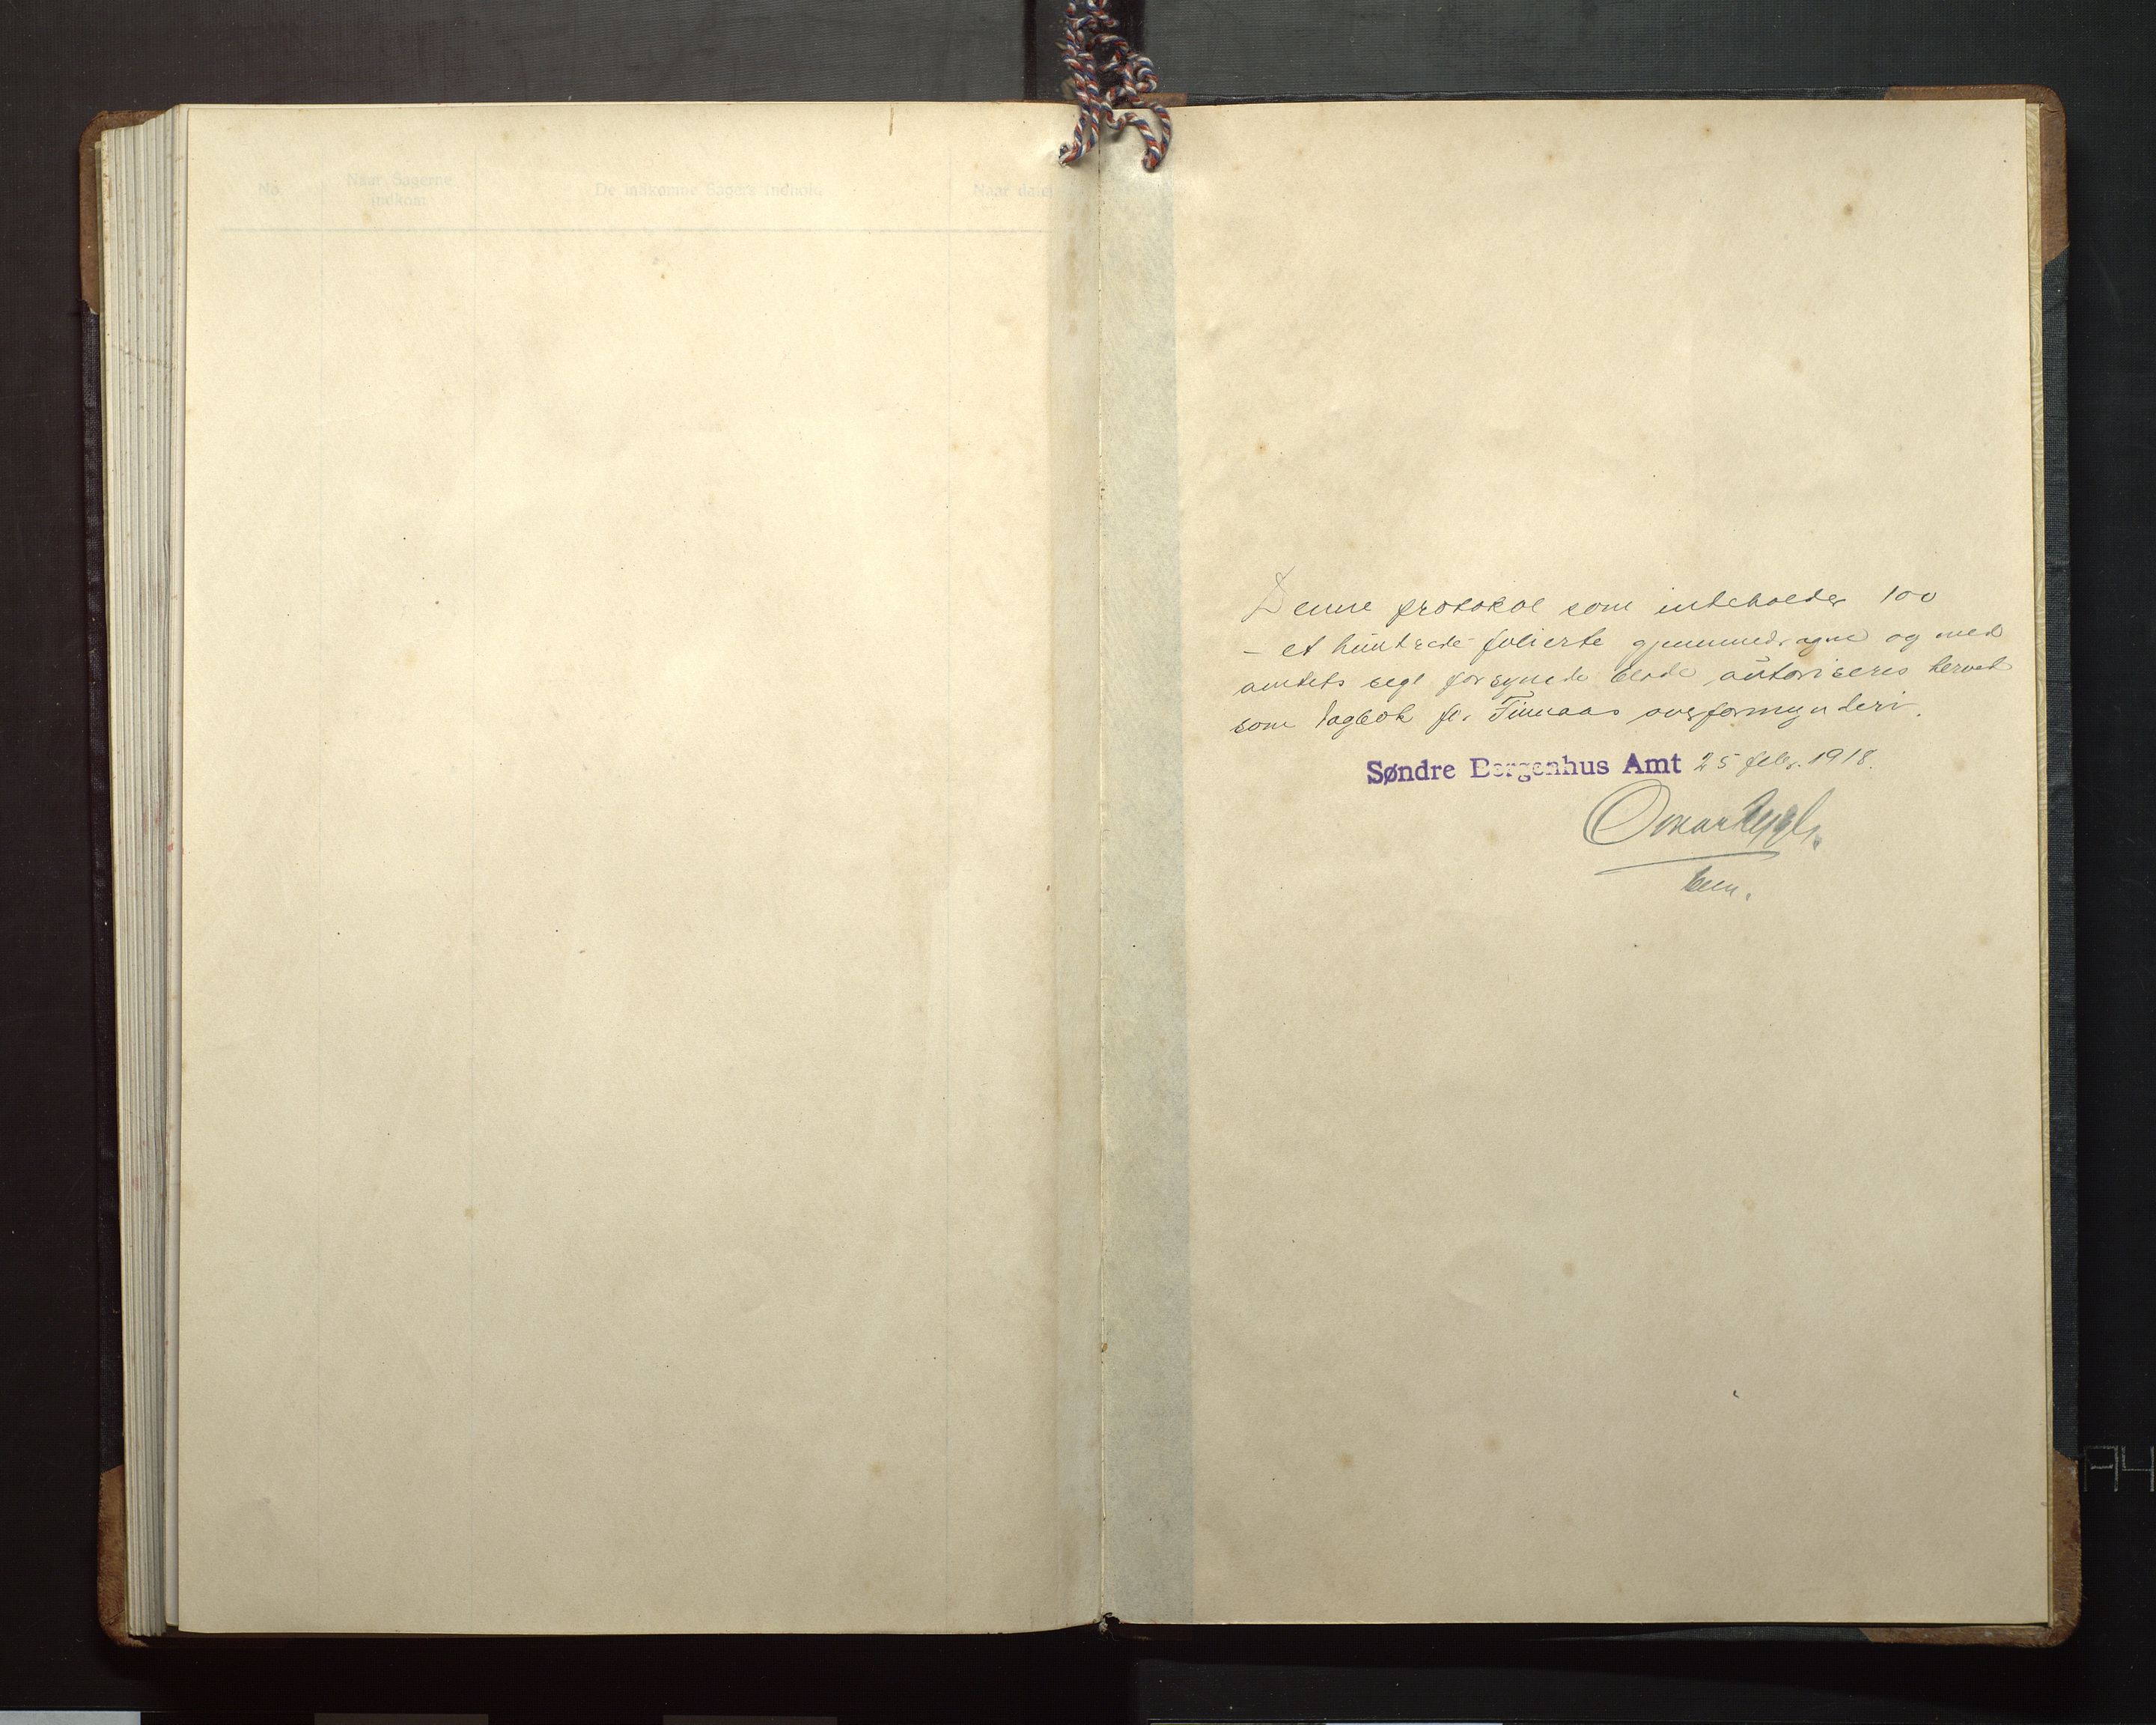 No.
Naar Sagerne
indkom
De indkomne Sagers Indhold.
Naar
Denne protokol som indeholder 100
- et hundrede folierte gjennemdragne og med
amtets segl forsynede blade autoriseres herved
som dagbok for Finnaas overformynderi.
Søndre Bergenhus Amt 25 febr. 1918.